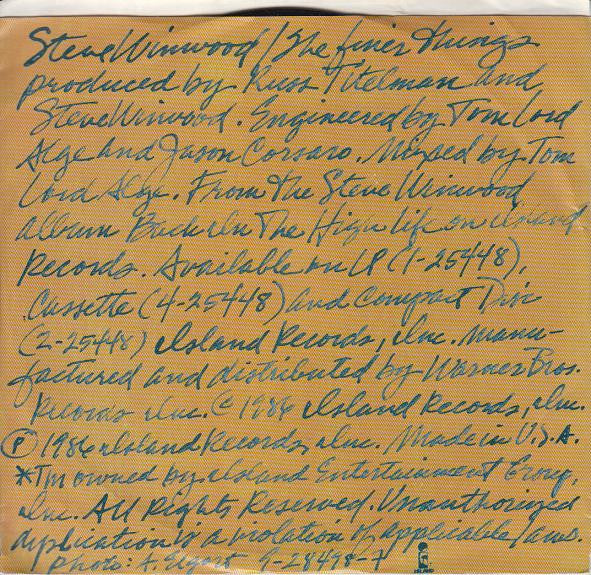 Steve Winwood/The finer things
produced by Russ Titelman and
Steve Winwood. Engineered by Tom Lord
Alge and Jason Corsaro. Mixed by Tom
Lord Alge. From The Steve Winwood
album Back In The High Life on Island
Records. Available on LP (1-25448),
Cassette (4-25448) and Compact Disc
(2-25448) Island Records, Inc. Manu-
factured and distributed by Warner Bros.
Records Inc. © 1986 Island Records, Inc.
℗ 1986 Island Records, Inc. Made in U.S.A.
*Tm owned by Island Entertainment Group,
Inc. All Rights Reserved. Unauthorized
duplication is a violation of applicable laws.
Photo: A. Elgort 7-28498-7